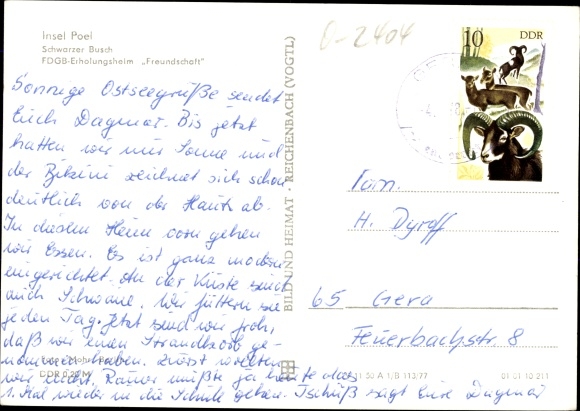 Insel Poel
Schwarzer Busch
FDGB-Erholungsheim „Freundschaft"
Sonnige Ostseegrüße sendet
Euch Dagmar. Bis jetzt
hatten wir nur Sonne und
der Bikini zeichnet sich schon
deutlich von der Haut ab.
In diesem Heim vorn gehen
wir Essen. Es ist ganz modern
eingerichtet. An der Küste sind
auch Schwäne. Wir füttern sie
jeden Tag. Jetzt sind wir froh,
daß wir einen Strandkorb ge-
nommen haben. Zuerst wollten
wir nicht. Rainer müßte ja heute das
1. Mal wieder in die Schule gehen. Tschüß sagt Eure Dagmar
DDR 0,20 M
BILD UND HEIMAT · REICHENBACH (VOGTL)
A 1/B 113/77
01 01 10 211
6-2404
10 DDR
Fam.
H. Dyroff
65 Gera
Feuerbachstr. 8